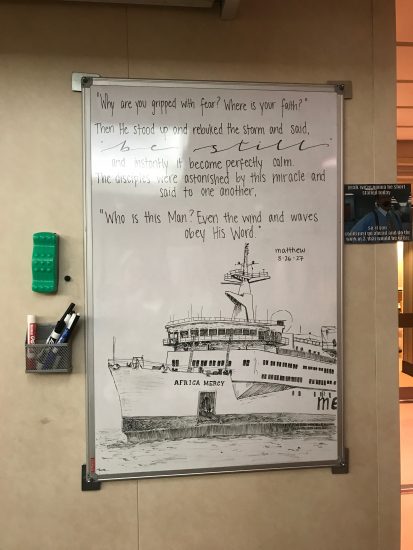 "Why are you gripped with fear? Where is your faith?"
Then He stood up and rebuked the storm and said,
"be still"
and instantly it became perfectly calm.
The disciples were astonished by this miracle and
said to one another,
"Who is this Man? Even the wind and waves
obey His Word."
matthew
8:26-27
AFRICA MERCY
ME